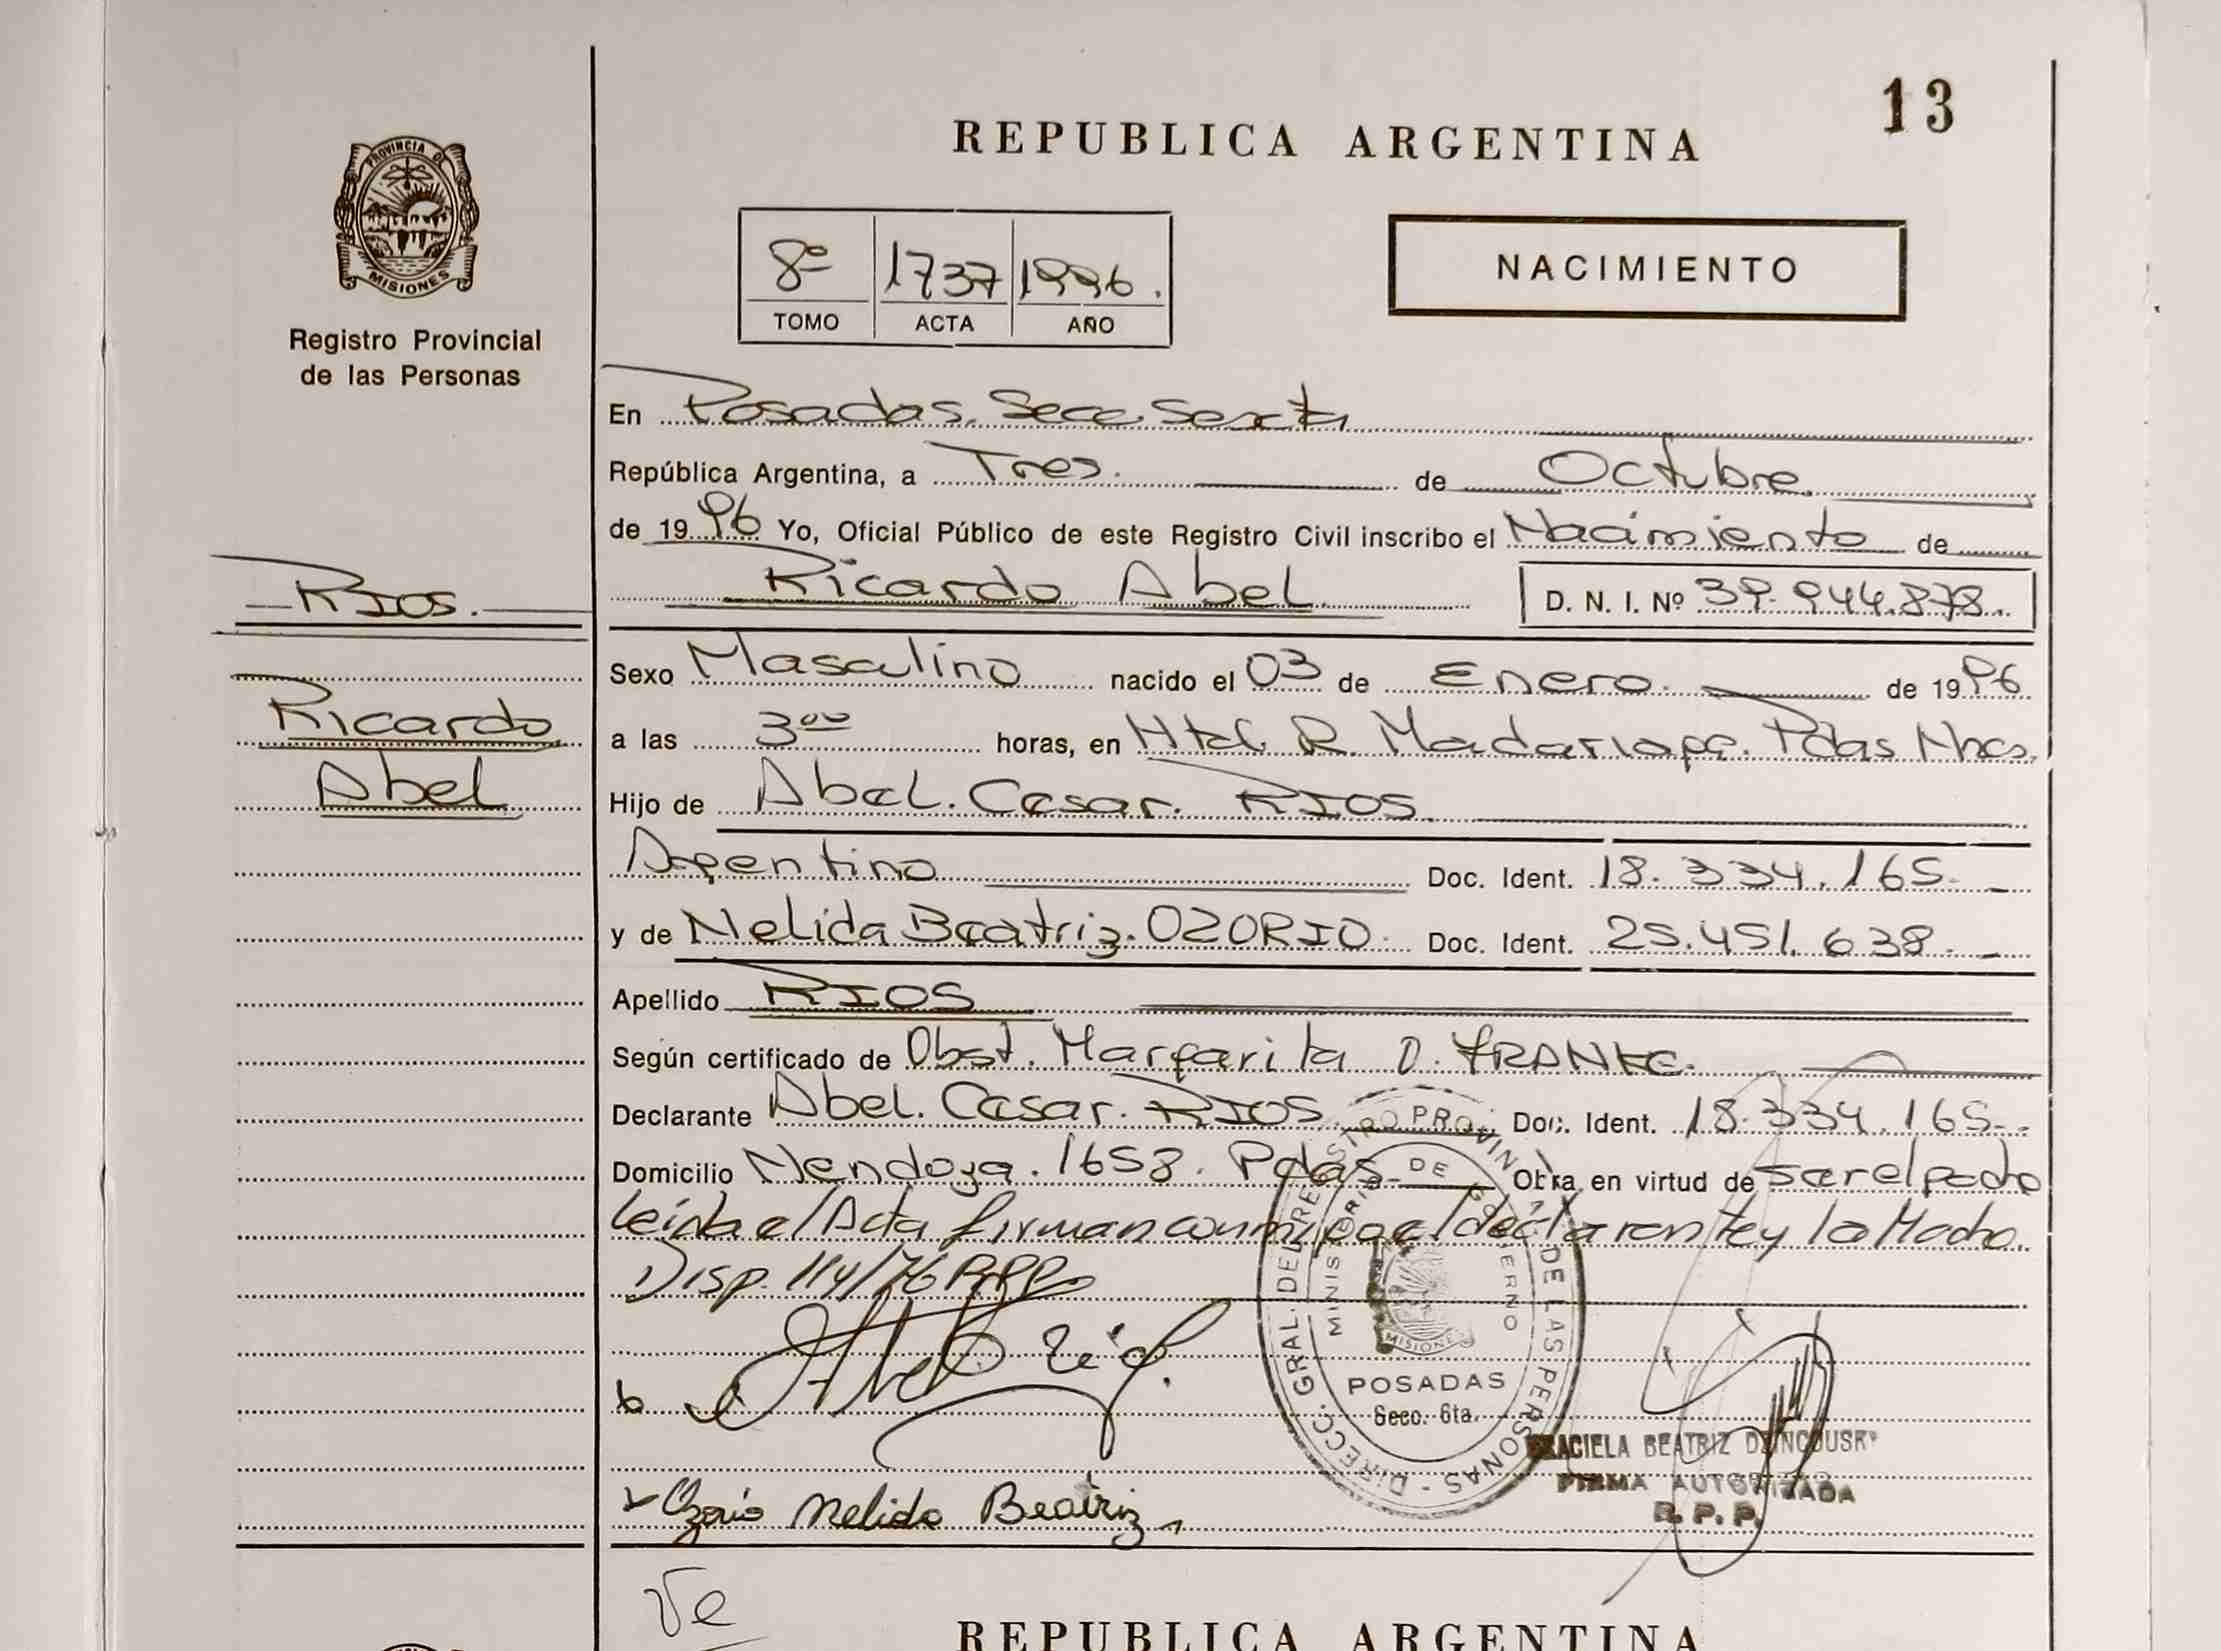 13
REPUBLICA ARGENTINA
PROVINCIA DE
MISIONES
Registro Provincial
de las Personas
8º 1737 1996.
TOMO ACTA AÑO
NACIMIENTO
En Posadas. Secc. Sexta
República Argentina, a Tres. de Octubre.
de 1996 Yo, Oficial Público de este Registro Civil inscribo el Nacimiento de
Ricardo Abel D. N. I. Nº 39.944.878.
RIOS.
Ricardo
Abel
Sexo Masculino nacido el 03 de Enero. de 1996
a las 3⁰⁰ horas, en Htal. R. Madariaga. Pdas Mnes.
Hijo de Abel. Cesar. RIOS
Argentino Doc. Ident. 18.334.165.
y de Nelida Beatriz. OZORIO. Doc. Ident. 25.451.638.
Apellido RIOS
Según certificado de Obst. Margarita O. FRANKE.
Declarante Abel. Cesar. RIOS. Doc. Ident. 18.334.165.
Domicilio Mendoza. 1658. Pdas Obra en virtud de ser el padre
leida el Acta firman conmigo el declarante y la Madre.
Disp. 114/76 RPP
DIRECC. GRAL. DEL REGISTRO PROVIN DE LAS PERSONAS
MINISTERIO DE GOBIERNO
MISIONES
POSADAS
Secc. 6ta.
GRACIELA BEATRIZ
FIRMA AUTORIZADA
R. P. P.
Ozorio Nelida Beatriz
Ve
REPUBLICA ARGENTINA